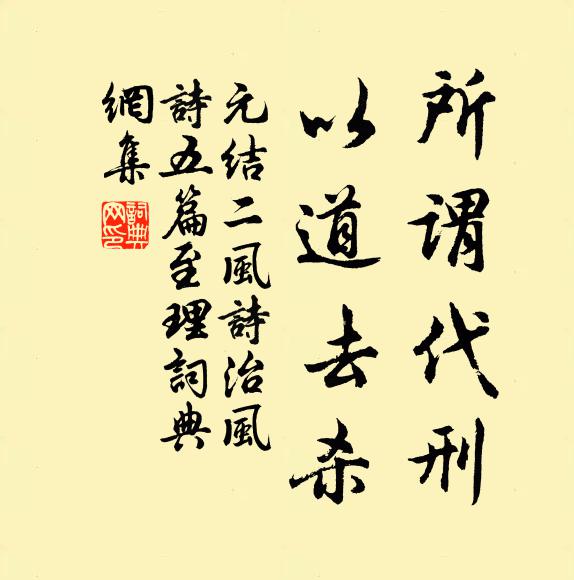 所谓代刑
以道去杀
元结二風詩治風
詩五篇至理詞典
網集
詞典
网印